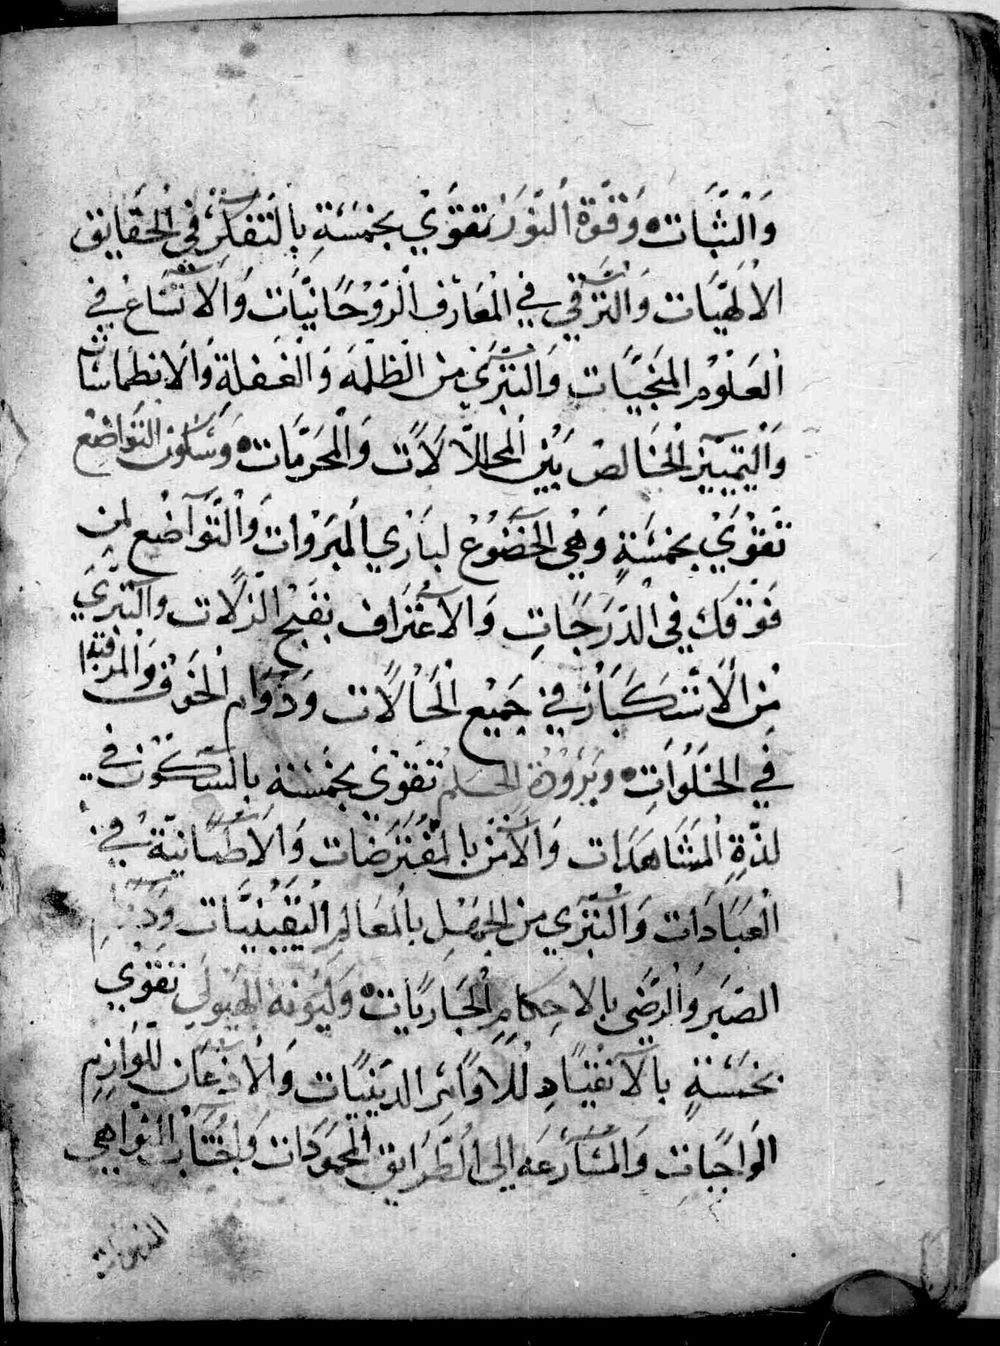 والثبات وقوة النور تقوي بخمسة بالتفكر في الحقايق
الالهيات والترقي في المعارف الروحانيات والاتساع في
العلوم المنجيات والتبري من الظلمة والغفلة والانطماسات
والتمييز الخالص بين المحللات والمحرمات وسكون التواضع
تقوي بخمسة وهي الخضوع لباري المبروات والتواضع لمن
فوقك في الدرجات والاعتراف بقبح الزلات والتبري
من الاستكبار في جميع الحالات ودوام الخوف والمراقبة
في الخلوات وبرودة الحلم تقوي بخمسة بالسكون في
لذة المشاهدات والامن بالمفترضات والاطمانية في
العبادات والتبري من الجهل بالمعالم اليقينيات ودوام
الصبر والرضى بالاحكام الجاريات وليونة الهيولى تقوي
بخمسة بالانقياد للاوامر الدينيات والاذعان للوازم
الواجبات والمسارعة الى الطرايق المحمودات واجتناب النواهي